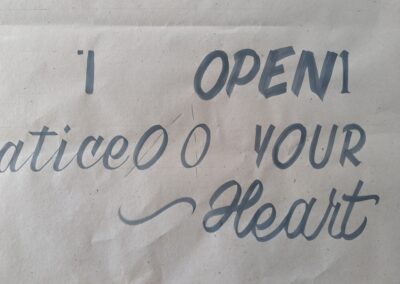 1 OPEN1
aticeOO YOUR
Heart